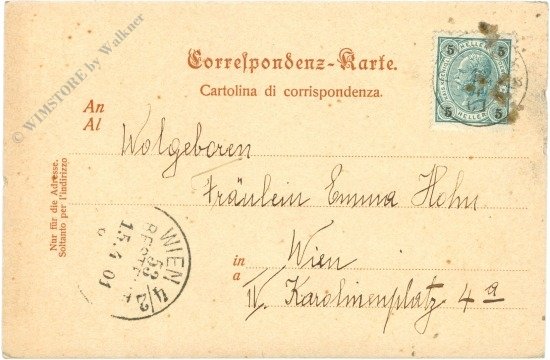 © WIMSTORE by Walkner
Correspondenz-Karte.
Cartolina di corrispondenza.
An
Al
Wolgeboren
Fräulein Emma Hehn
in
a
Wien
IV. Karolinenplatz 4a
Nur für die Adresse.
Soltanto per l'indirizzo
5 HELLER 5
5 5
WIEN 4/2
53
BESTELLT
15.4.01